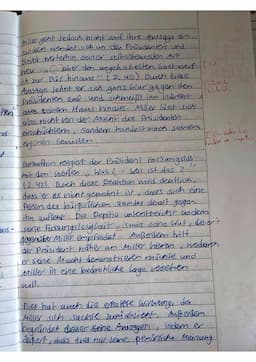 Miller geht jedoch nicht auf ihre Aussage ein
sondern wendet sich an den Präsidenten und
bleibt weiterhin seiner selbstbewussten Art
treu. " [...] aber den ungehobelten Gast werf
ich zur Tür hinaus" (Z. 40). Durch diese
Aussage lehnt er sich ganz klar gegen den
Präsidenten auf und schmeißt ihn indirekt
aus seinem Haus hinaus. Miller lässt sich
also nicht von der Macht des Präsidenten
einschüchtern, sondern handelt nach seinem
eigenen Gewissen.
Daraufhin reagiert der Präsident fassungslos
mit den Worten „Was? - Was ist das?"
(Z. 43). Durch diese Reaktion wird deutlich,
dass er es nicht gewohnt ist, dass sich eine
Person des bürgerlichen Standes derart gegen
ihn äußert. Die unterstreicht zudem
seine Fassungslosigkeit, sowie seine Wut, die er
gegenüber Miller empfindet. Außerdem tritt
der Präsident näher an Miller heran, wodurch
er seine Macht demonstrieren möchte und
Miller in eine bedrohliche Lage versetzen
will.
Dies hat auch die erhoffte Wirkung, da
Miller sich Außerdem
begründet dieser seine Aussagen, indem er
äußert, dass dies nur seine persönliche Meinung